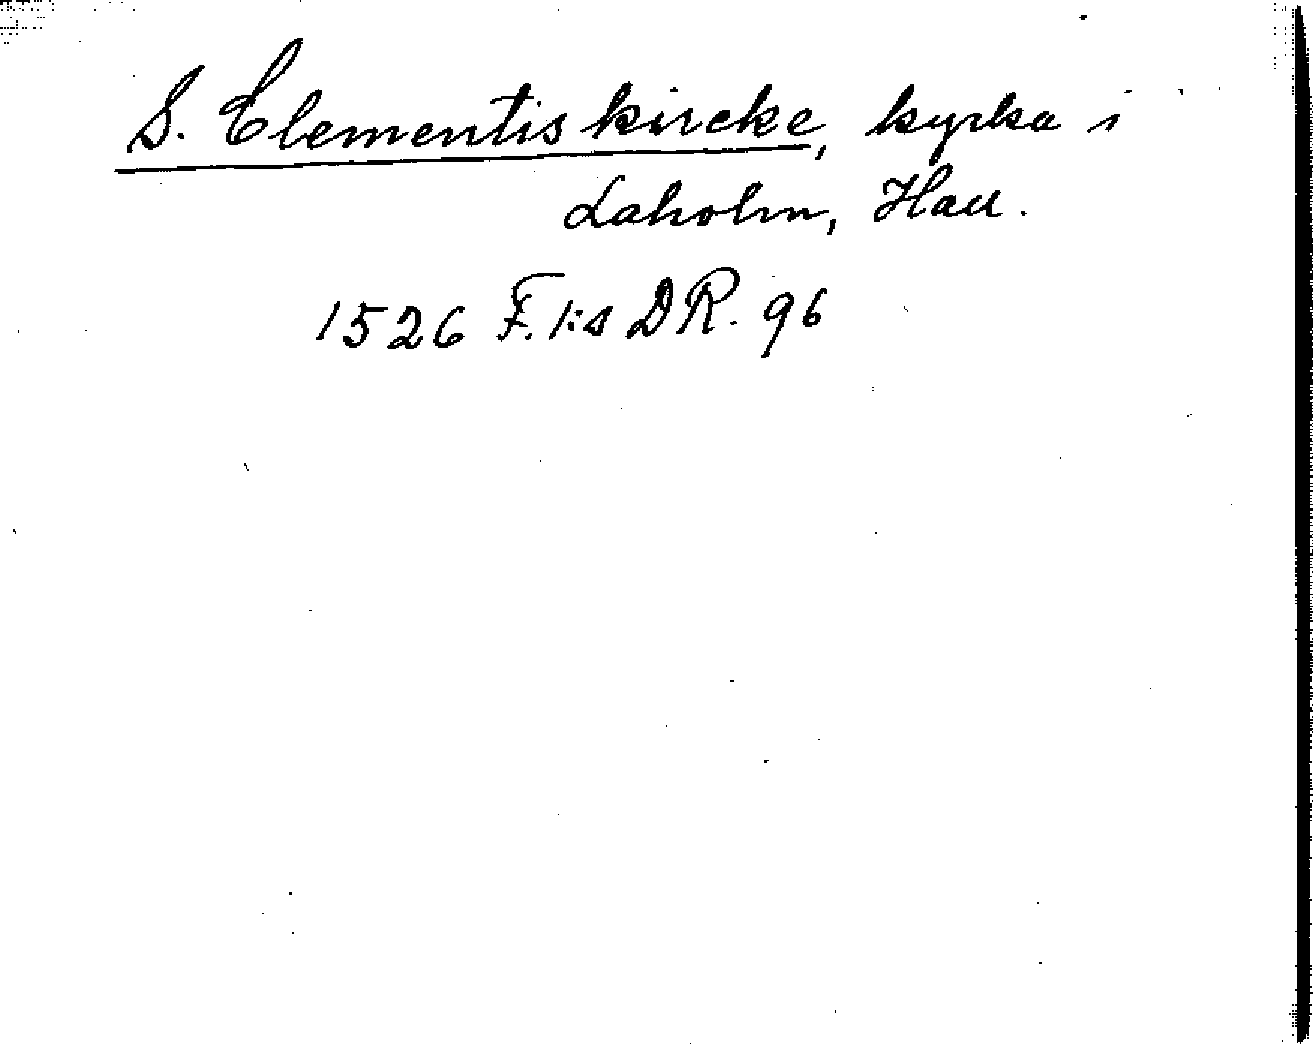 S. Clementis kircke, kyrka i
Laholm, Hall.
1526 F. 1:s DR. 96